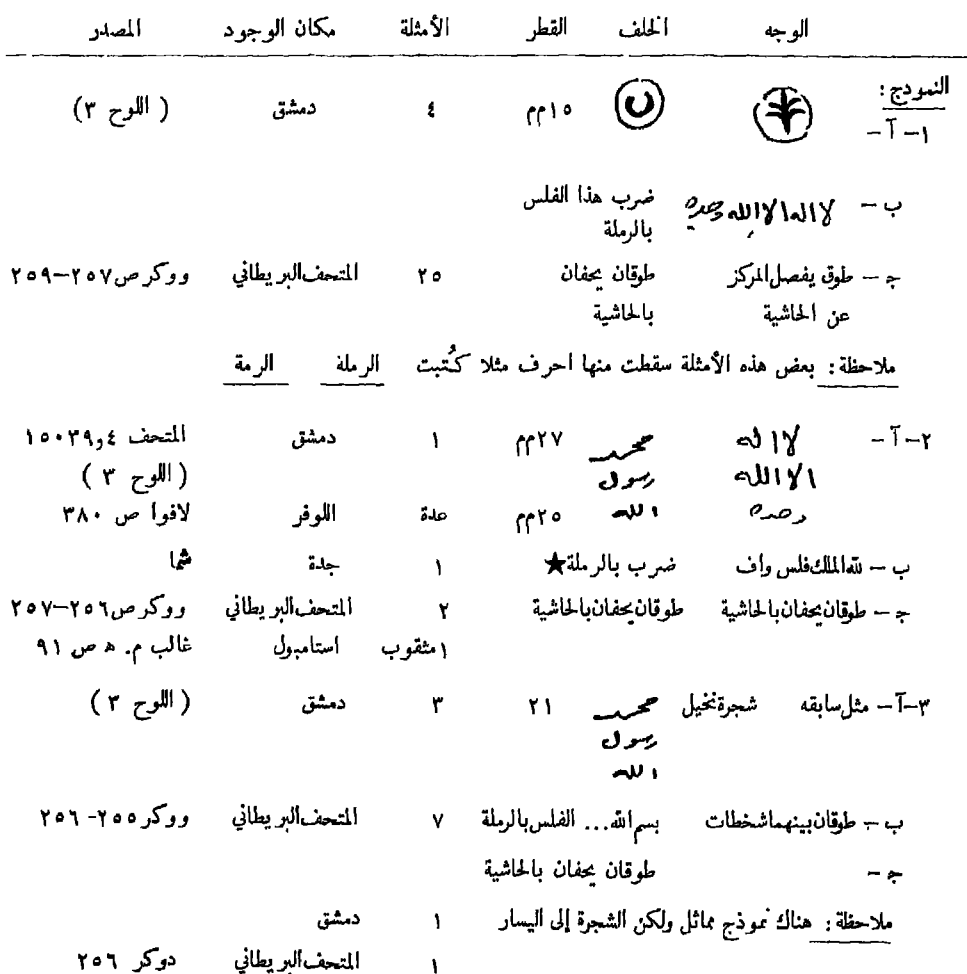 الوجه الخلف القطر الأمثلة مكان الوجود المصدر
النموذج :
١- آ - ١٥مم ٤ دمشق ( اللوح ٣)
ب - لا اله الا الله وحده ضرب هذا الفلس
بالرملة
ج - طوق يفصل المركز طوقان يحفان ٢٥ المتحف البريطاني ووكر ص ٢٥٧-٢٥٩
عن الحاشية بالحاشية
ملاحظة : بعض هذه الأمثلة سقطت منها احرف مثلا كُتبت الرملة الرمة
٢- آ - لا اله محمد ٢٧مم ١ دمشق المتحف ٤و١٥٠٣٩
الا الله رسول ( اللوح ٣ )
وحده الله ٢٥مم عدة اللوفر لافوا ص ٣٨٠
ب - لله الملك فلس واف ضرب بالرملة★ ١ جدة شما
ج - طوقان يحفان بالحاشية طوقان يحفان بالحاشية ٢ المتحف البريطاني ووكر ص ٢٥٦-٢٥٧
١ مثقوب استامبول غالب م. ه ص ٩١
٣-آ - مثل سابقه شجرة نخيل محمد ٢١ ٣ دمشق ( اللوح ٣ )
رسول
الله
ب - طوقان بينهما شخطات بسم الله... الفلس بالرملة ٧ المتحف البريطاني ووكر ٢٥٥- ٢٥٦
ج - طوقان يحفان بالحاشية
ملاحظة : هناك نموذج مماثل ولكن الشجرة إلى اليسار ١ دمشق
١ المتحف البريطاني دوكر ٢٥٦